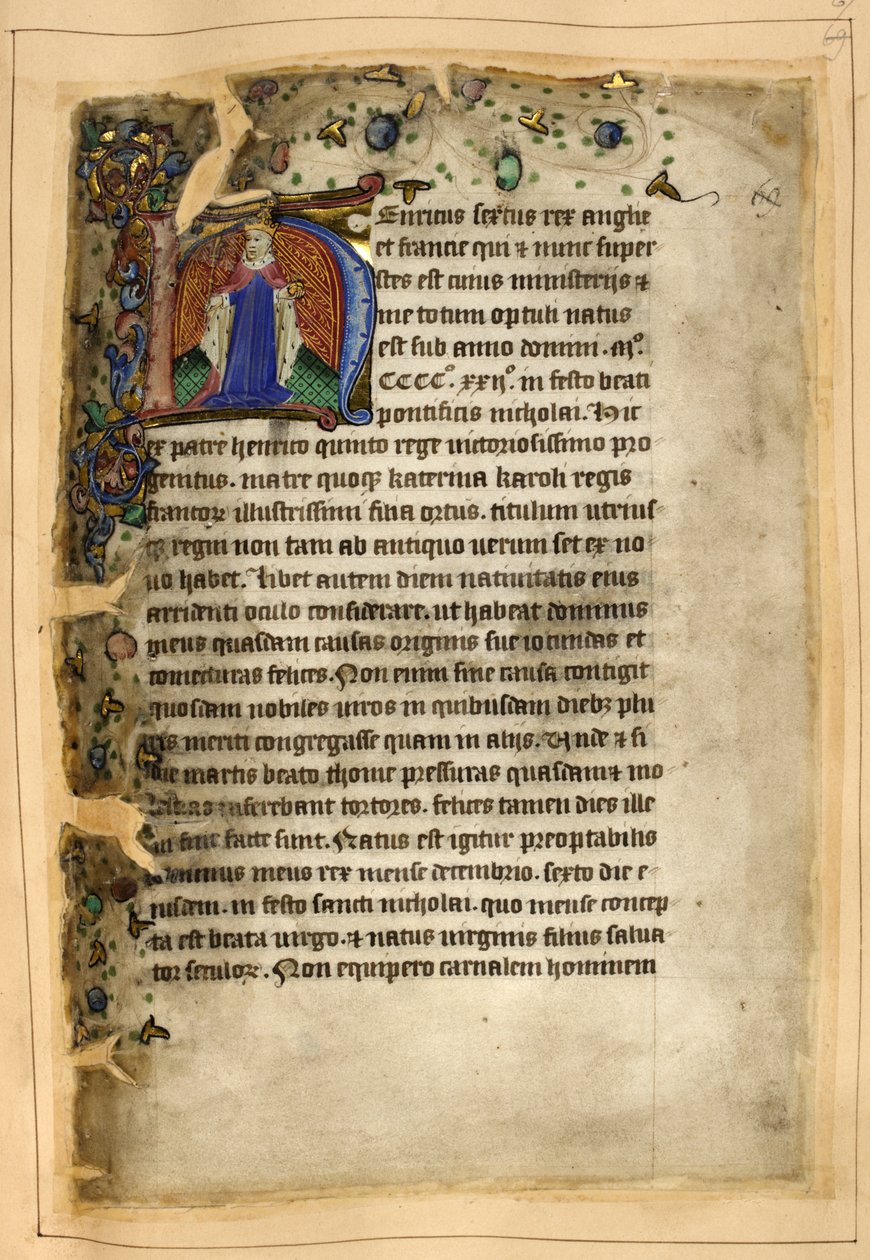 69
69
HEnricus sextus rex anglie
et francie qui ⁊ nunc super-
stes est cuius ministerijs ⁊
me totum optuli natus
est sub anno domini .Mº.
CCCCº. xxijº. in festo beati
pontificis nicholai. Hic
ex patre henrico quinto rege uictoriosissimo pro-
genitus. matre quoqꝫ katerina karoli regis
francoꝝ illustrissimi filia ortus. titulum utrius-
qꝫ regni non tam ab antiquo uerum set ex no-
uo habet. Libet autem diem natiuitatis eius
arridenti oculo considerare. ut habeat dominus
meus quasdam causas originis sue iocundas et
coniecturas felices. Non enim sine causa contigit
quosdam nobiles uiros in quibusdam diebꝫ plu-
ris meriti congregasse quam in alijs. Unde ⁊ si
die martis beato thome pressuras quasdam ⁊ mo-
lestias inferebant tortores. felices tamen dies ille
in fine facte sunt. Natus est igitur preoptabilis
dominus meus rex mense decembrio. sexto die e-
iusdem. in festo sancti nicholai. quo mense concep-
ta est beata uirgo. ⁊ natus uirginis filius salua-
tor seculoꝝ. Non equipero carnalem hominem